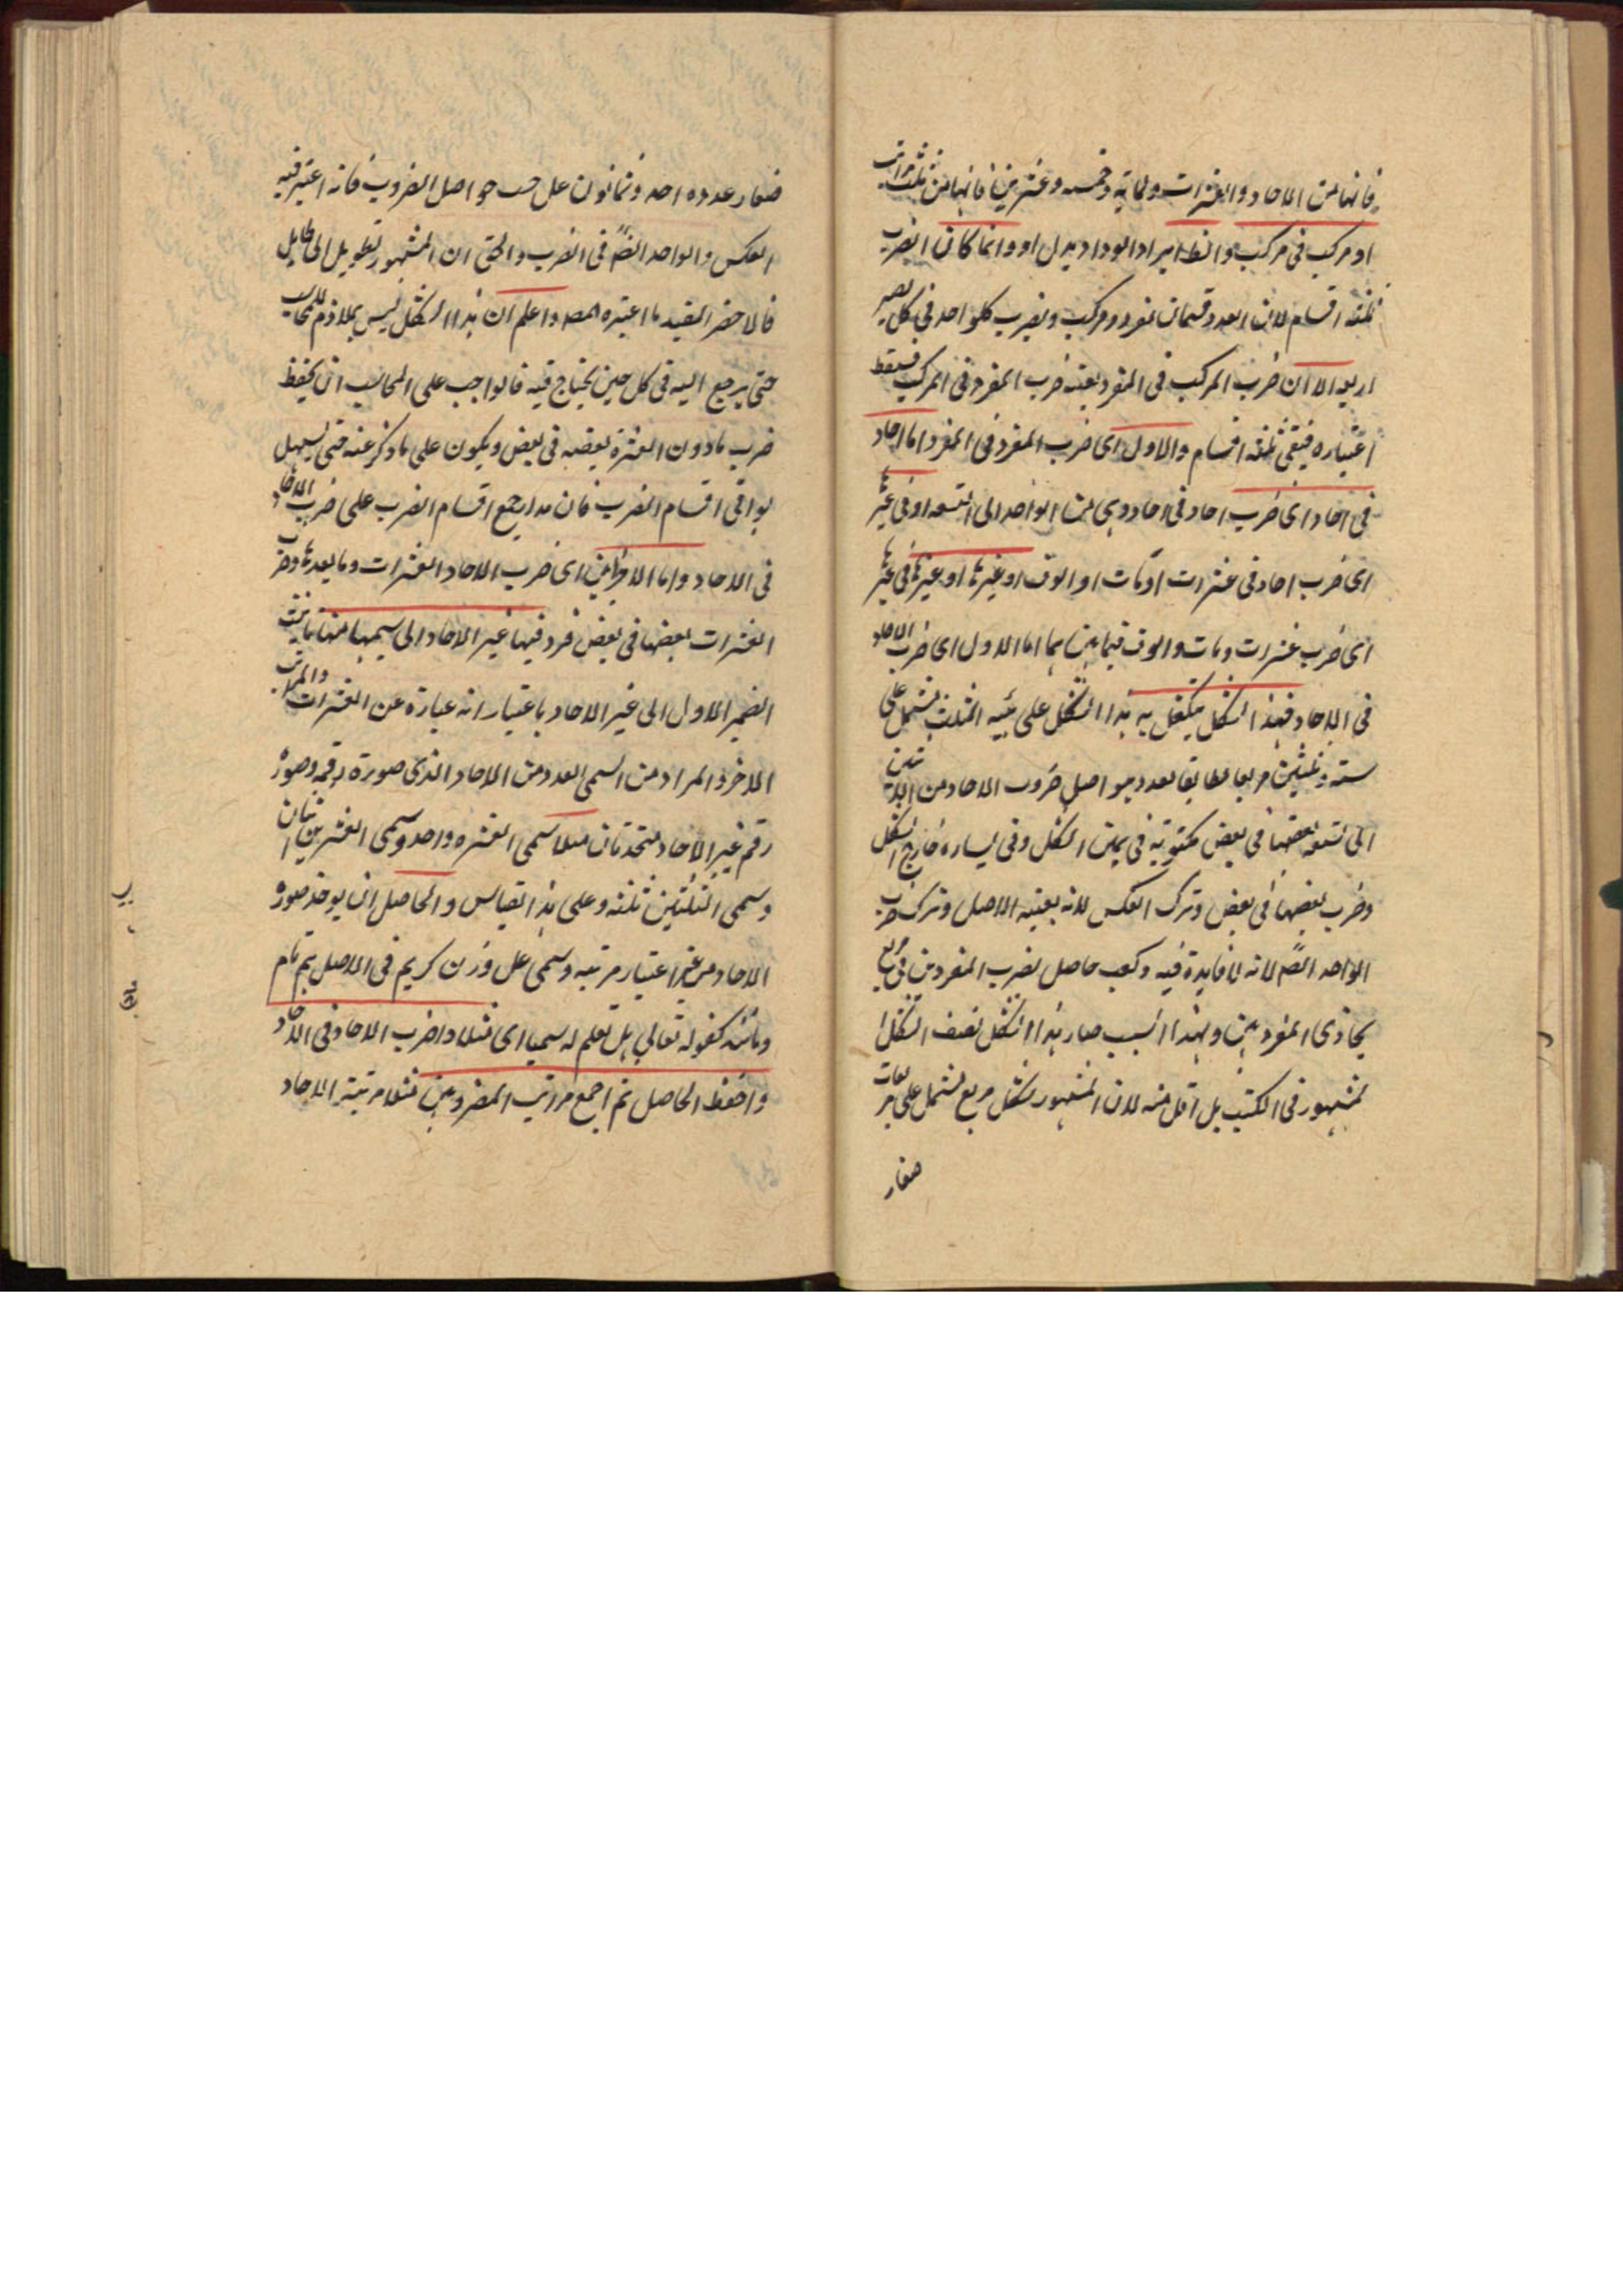 فانها من الاحاد والعشرات ولمائة وخمسه وعشرين فانها من ثلث مراتب
او مركب فى مركب والظ ايراد الواد بدل او وانما كان الضرب
ثلثه اقسام لان العدد قسمان مفرد ومركب وبضرب كلواحد فى كل يصير
اربعه الا ان ضرب المركب فى المفرد بعينه ضرب المفرد فى المركب فيسقط
اعتباره فيبقى ثلثه اقسام والاول اى ضرب المفرد فى المفرد اما احاد
فى احاد اى ضرب احاد فى احاد وهى من الواحد الى التسعه او فى غيرها
اى ضرب احاد فى عشرات او مآت او الوف او غيرها او غيرها فى غيرها
اى ضرب عشرات ومات والوف فيما بينهما اما الاول اى ضرب الاحاد
فى الاحاد فهذا الشكل متكفل به هذا الشكل على هيئه المثلث يشتمل على
سته وثلثين مربعا مطابقا لعدد حواصل ضروب الاحاد من الاثنين
الى تسعه بعضها فى بعض مكتوبة فى يمين الشكل وفى يساره خارج الشكل
وضرب بعضها فى بعض وترك العكس لانه بعينه الاصل وترك ضرب
الواحد ايضً لانه لا فايدة فيه وكتب حاصل ضرب المفردين فى مربع
يحاذى المفردين وبهذا السبب صار هذا الشكل نصف الشكل
لمشهور فى الكتب بل اقل منه لان المشهور شكل مربع يشتمل على مربعات
صغار
صغار عدده احد وثمانون على حسب حواصل الضروب فانه اعتبر فيه
العكس والواحد ايضً فى الضرب والحق ان المشهور تطويل الى طايل
فالاخصر المفيد ما اعتبره المصـ واعلم ان هذا الشكل ليس بملازم للمحاسب
حتى يرجع اليه فى كل حين يحتاج فيه فالواجب على المحاسب ان يحفظ
ضرب مادون العشرة بعضه فى بعض ويكون على ماذكر عنه حتى يسهل
بواقى اقسام الضرب فان مدار جميع اقسام الضرب على ضرب الاحاد
فى الاحاد واما الاخران اى ضرب الاحاد العشرات وما بعدها وضرب
العشرات بعضها فى بعض فرد فيها غير الاحاد الى سميها منها تانيث
الضمير الاول الى غير الاحاد باعتبار انه عبارة عن العشرات والمراتب
الاخر والمراد من السمى العدد من الاحاد الذى صورة رقمه وصورة
رقم غير الاحاد متحدتان مثلا سمى العشره واحد وسمى العشرين اثنان
وسمى الثلثين ثلثه وعلى هذا القياس والحاصل ان يوخذ صورة
الاحاد من غير اعتبار مرتبه وسمى على وزن كريم فى الاصل هم نام
ومانند كقوله تعالى هل تعلم له سميا اى مثلا واضرب الاحاد فى الاحاد
واحفظ الحاصل ثم اجمع مراتب المضروبين مثلا مرتبة الاحاد